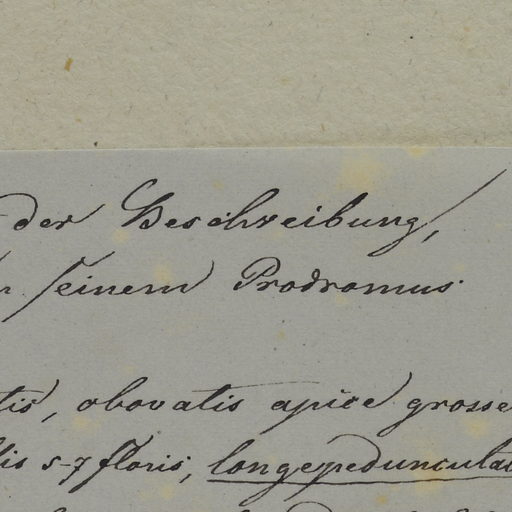 der Beschreibung,
seinem Prodromus
tis, obovatis apice grosse
lis 5-7 floris, longepedunculat